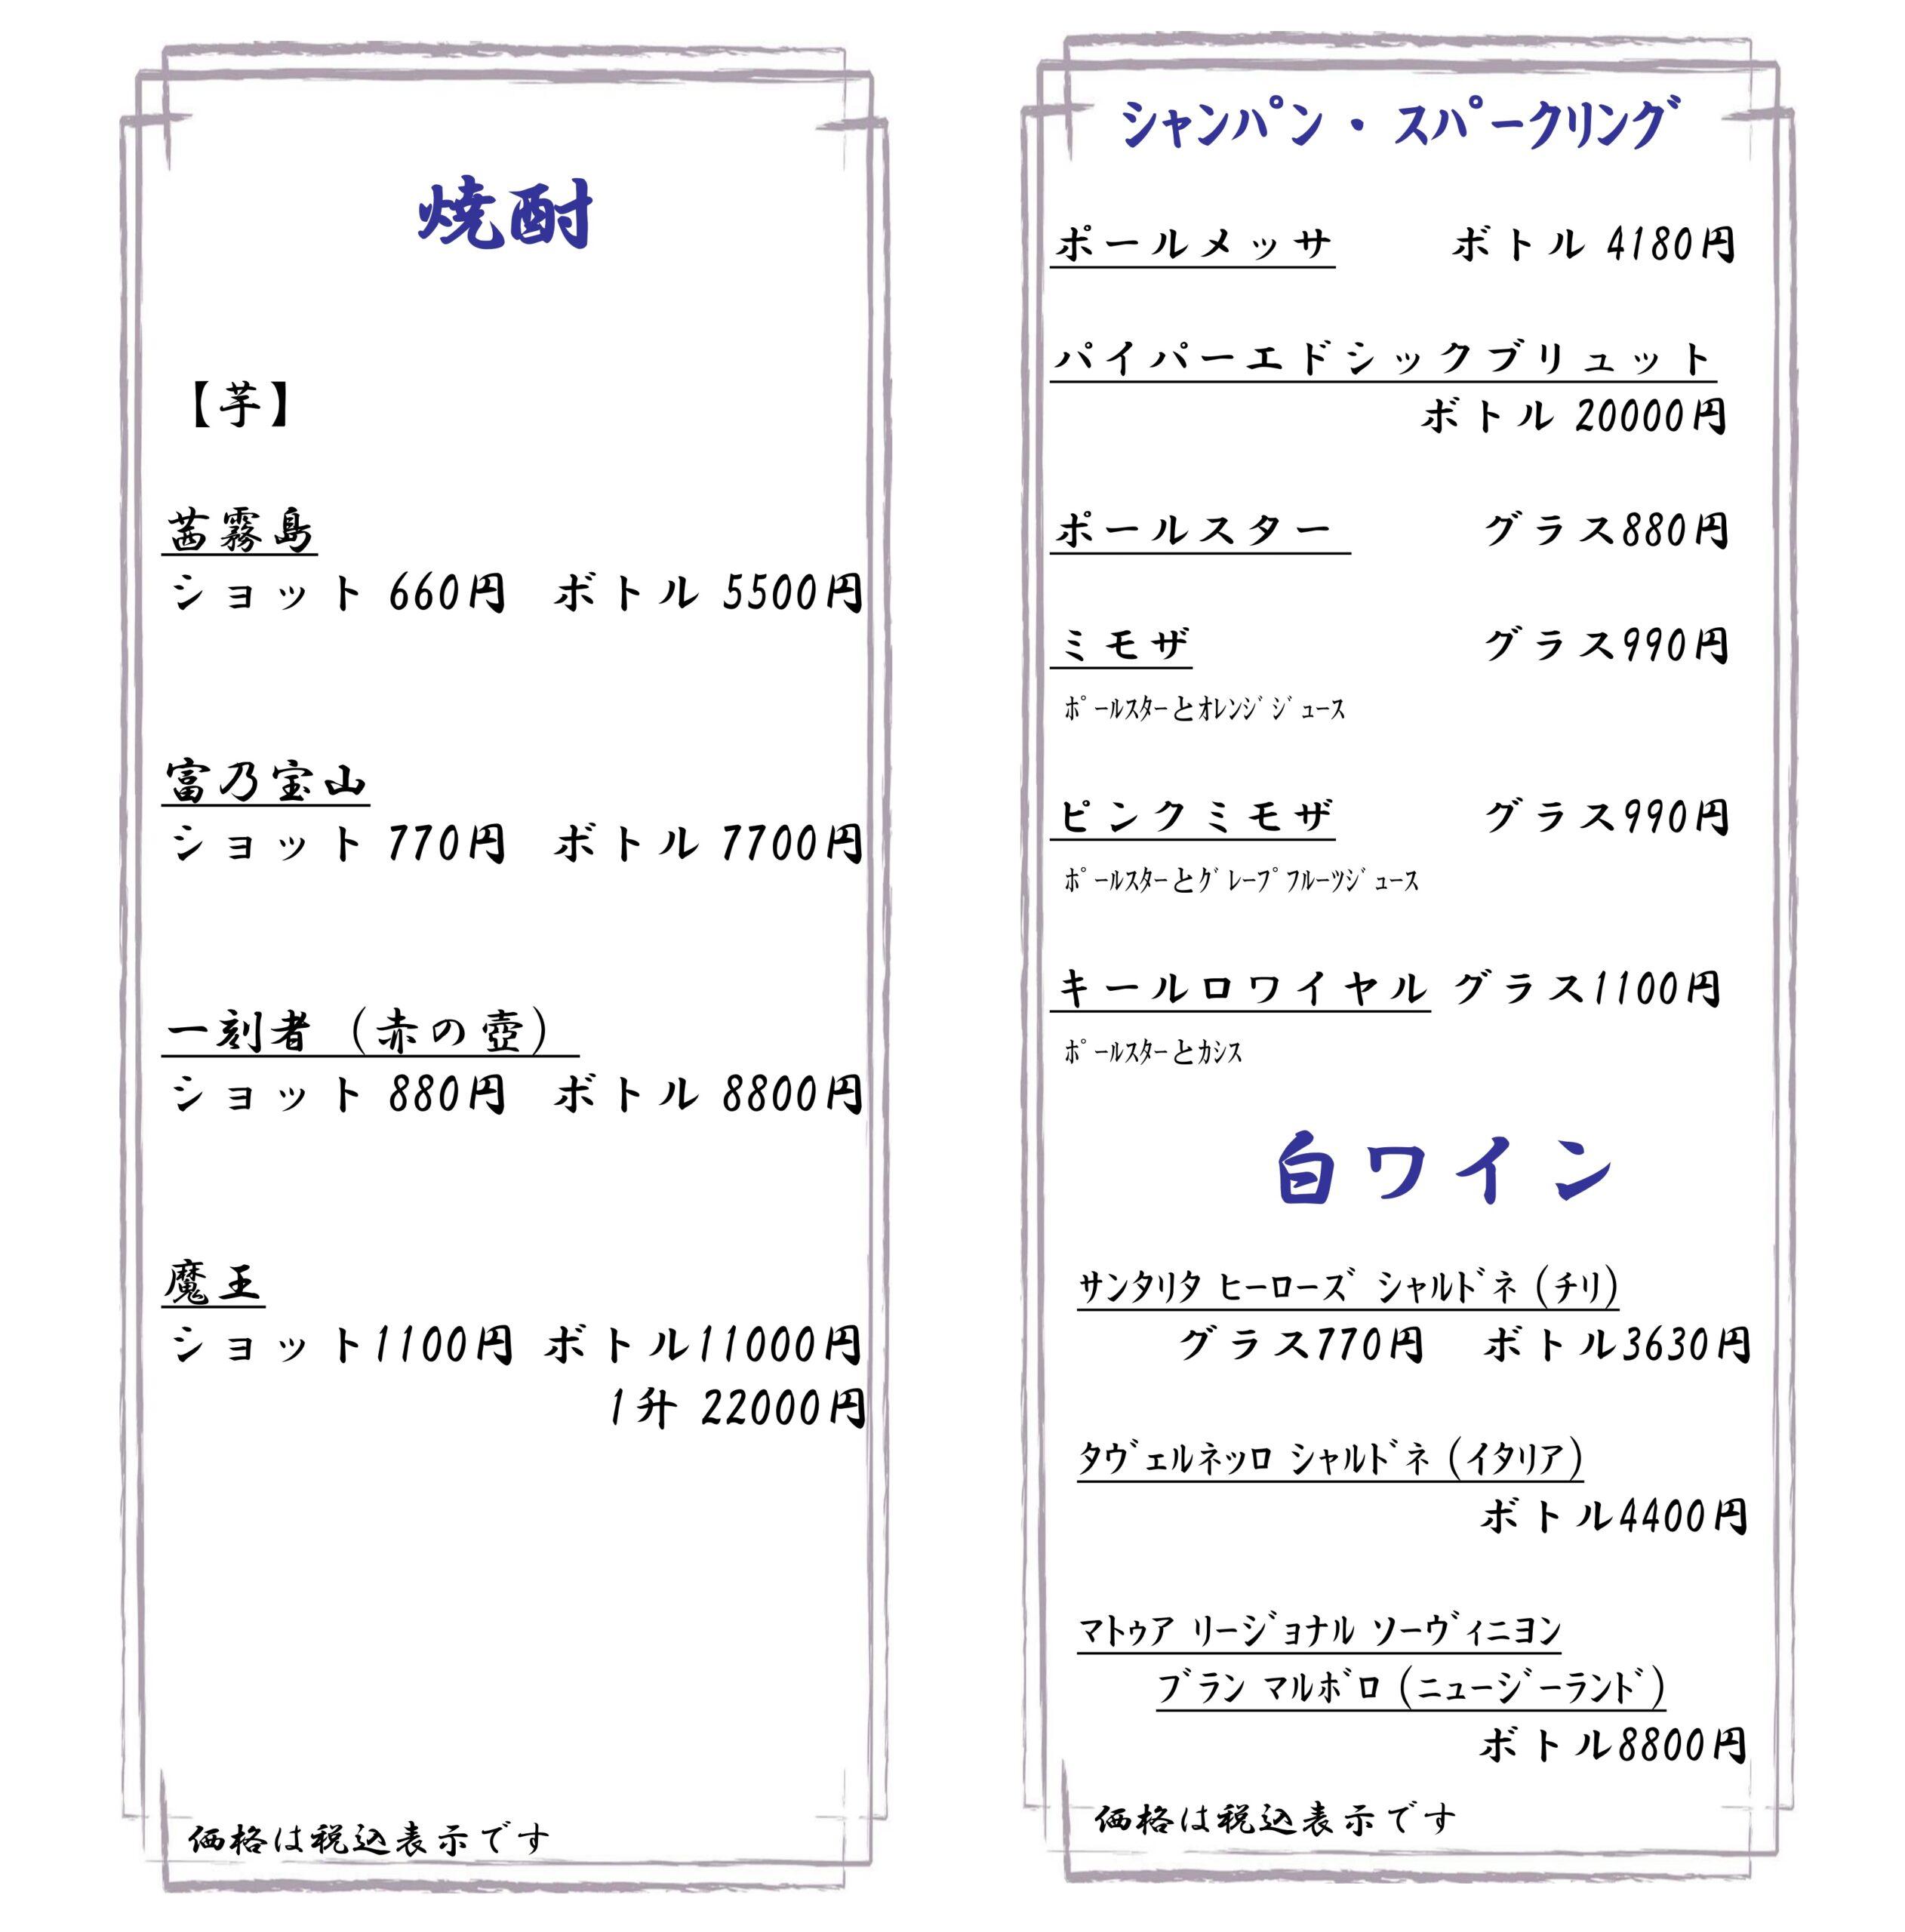 焼酎
【芋】
茜霧島
ショット 660円 ボトル 5500円
富乃宝山
ショット 770円 ボトル 7700円
一刻者（赤の壺）
ショット 880円 ボトル 8800円
魔王
ショット1100円 ボトル11000円
1升 22000円
価格は税込表示です
シャンパン・スパークリング
ポールメッサ ボトル 4180円
パイパーエドシックブリュット
ボトル 20000円
ポールスター グラス880円
ミモザ グラス990円
ﾎﾟｰﾙｽﾀｰとｵﾚﾝｼﾞｼﾞｭｰｽ
ピンクミモザ グラス990円
ﾎﾟｰﾙｽﾀｰとｸﾞﾚｰﾌﾟﾌﾙｰﾂｼﾞｭｰｽ
キールロワイヤル グラス1100円
ﾎﾟｰﾙｽﾀｰとｶｼｽ
白ワイン
ｻﾝﾀﾘﾀ ﾋｰﾛｰｽﾞ ｼｬﾙﾄﾞﾈ (ﾁﾘ)
グラス770円 ボトル3630円
ﾀｳﾞｪﾙﾈｯﾛ ｼｬﾙﾄﾞﾈ (ｲﾀﾘｱ)
ボトル4400円
ﾏﾄｩｱ ﾘｰｼﾞｮﾅﾙ ｿｰｳﾞｨﾆﾖﾝ
ﾌﾞﾗﾝ ﾏﾙﾎﾞﾛ (ﾆｭｰｼﾞｰﾗﾝﾄﾞ)
ボトル8800円
価格は税込表示です